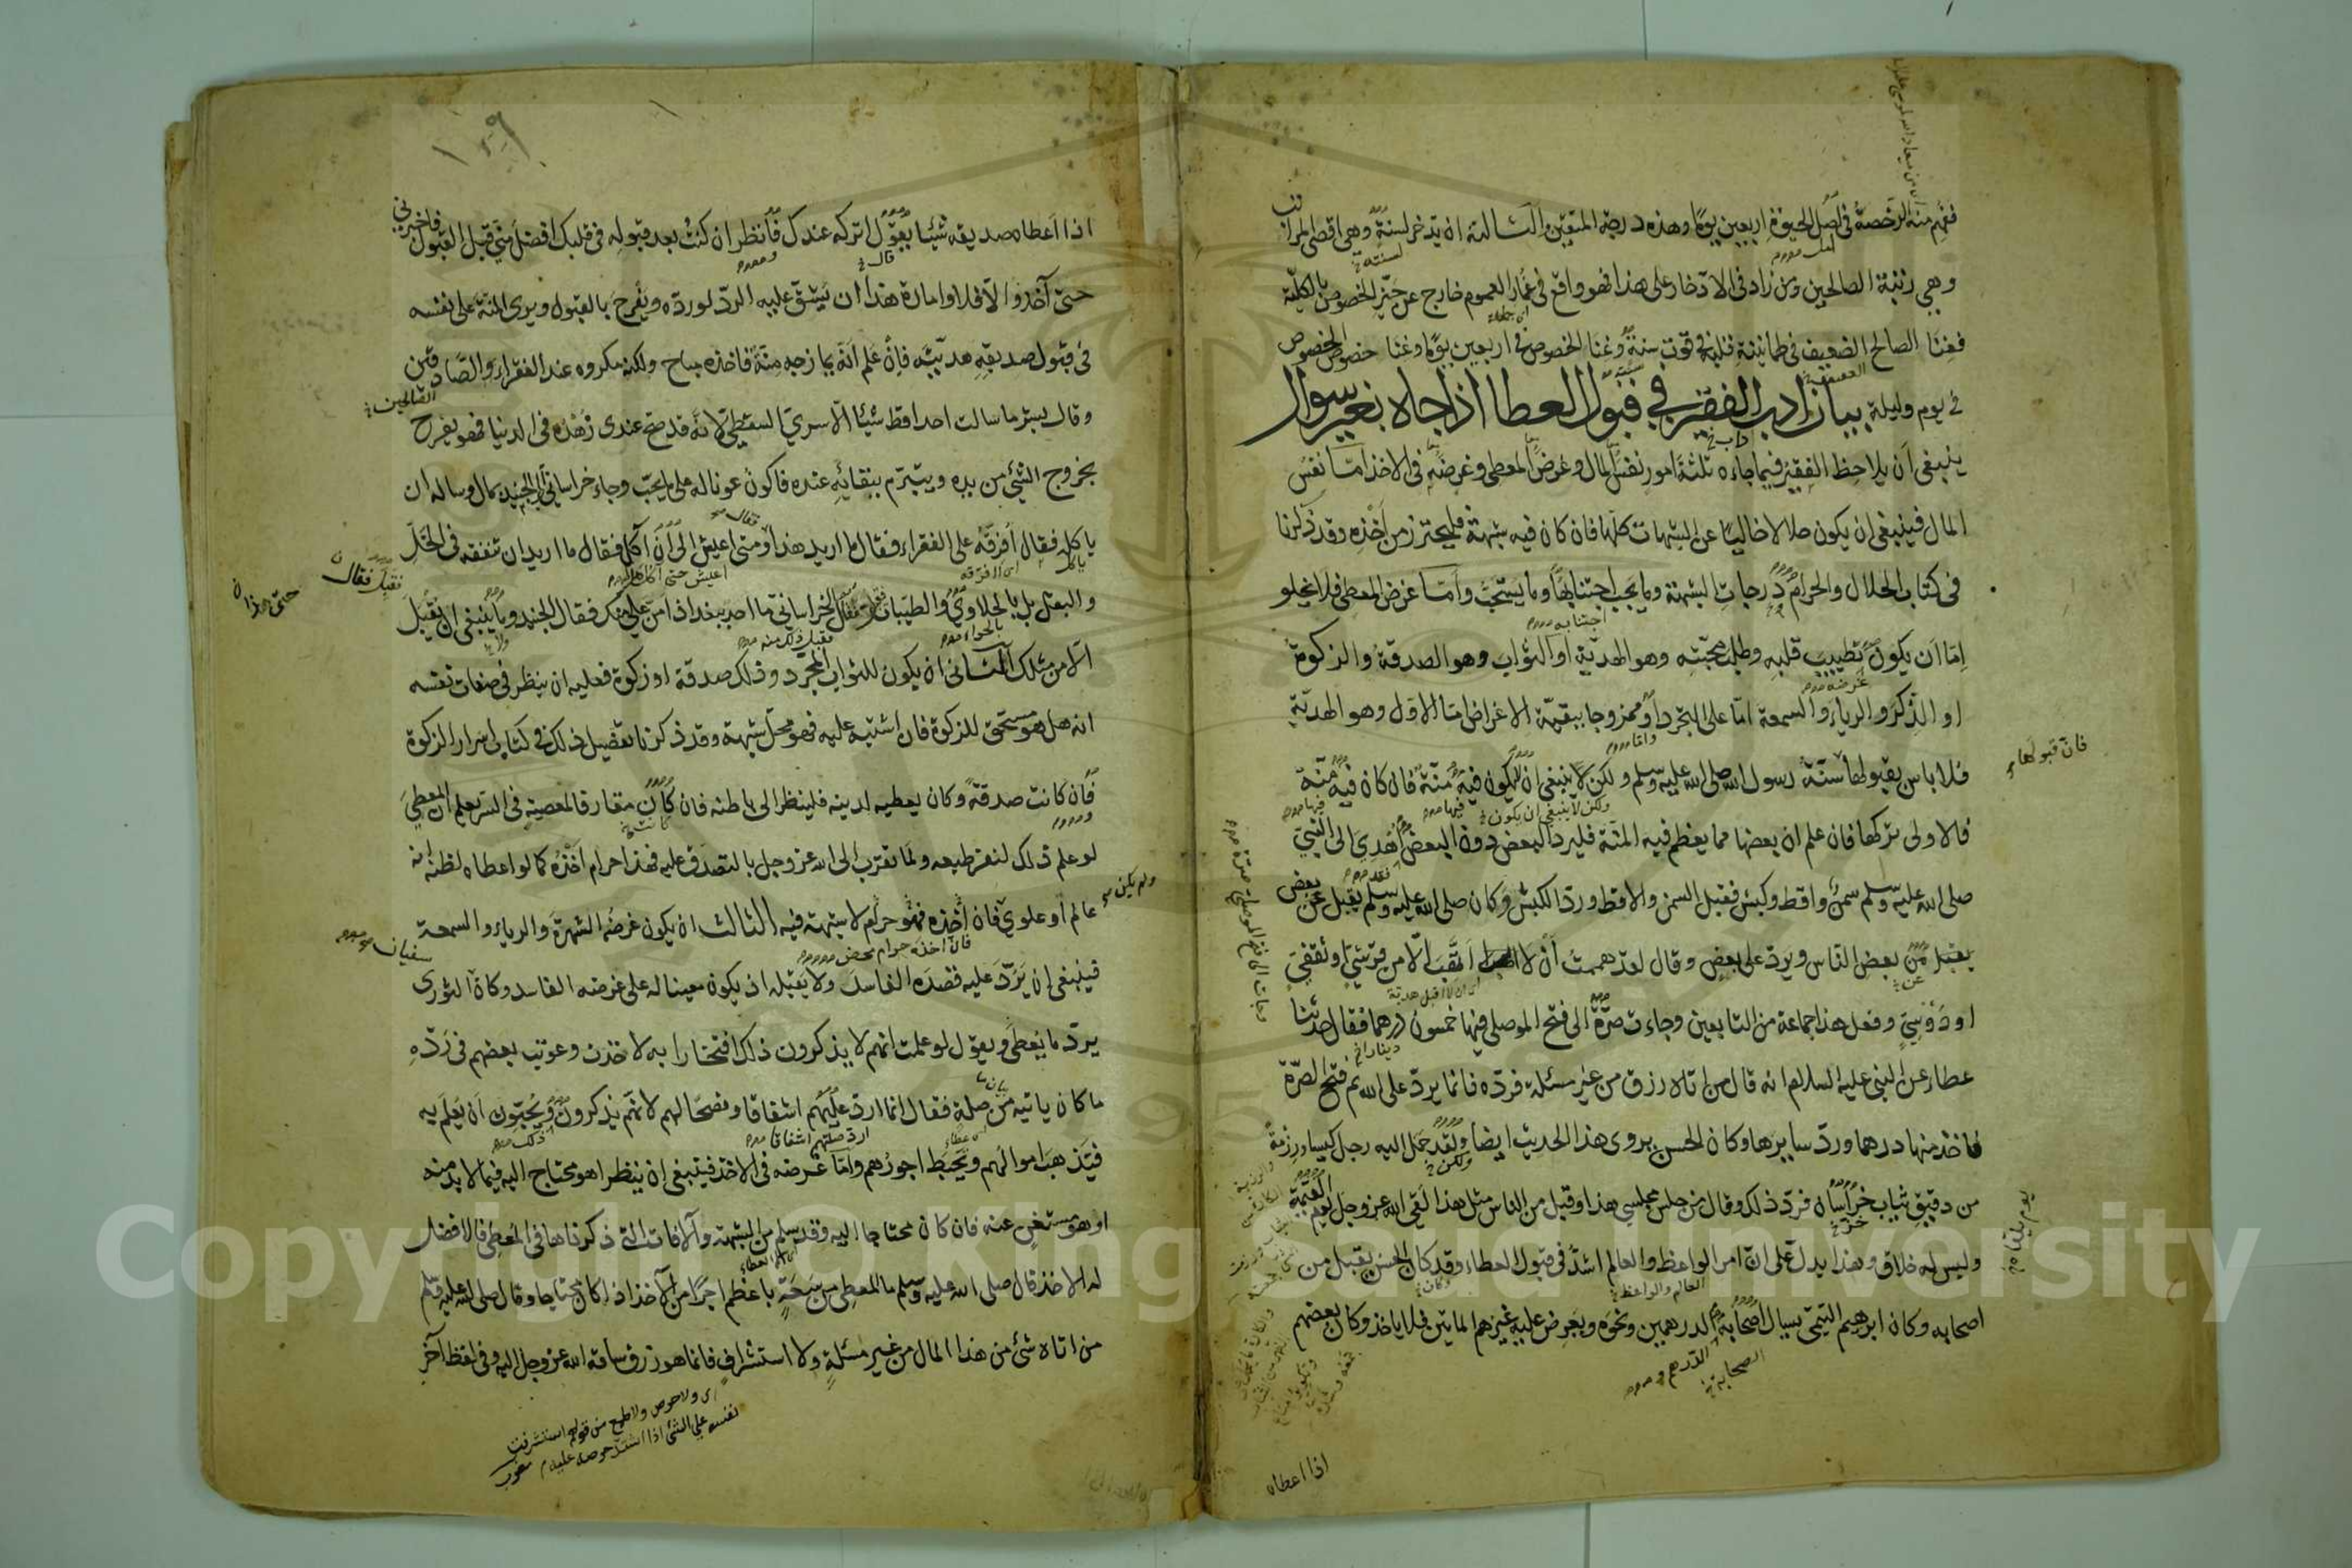 ففهم منه الرخصة في اصل الحيوة اربعين يوما وهذه درجة المتقين والثالثة ان يدخر لسنة وهي اقصى المراتب
وهي رتبة الصالحين ومن زاد في الادخار على هذا فهو واقع في غمار العموم خارج عن حيز الخصوص بالكلية
فغنا الصالح الضعيف في طمانينة قلبه في قوت سنة وغنا الخصوص في اربعين يوما وغنا خصوص الخصوص
في يوم وليلة بيان اداب الفقير في قبول العطا اذا جاه بغير سوال
ينبغي ان يلاحظ الفقير فيما جاءه ثلثة امور نفس المال وغرض المعطي وغرضه في الاخذ اما نفس
المال فينبغي ان يكون حلالا خاليا عن الشبهات كلها فان كان فيه شبهة فليحترز من اخذه وقد ذكرنا
في كتاب الحلال والحرام درجات الشبهة وما يجب اجتنابها وما يستحب واما غرض المعطي فلا يخلو
اما ان يكون تطييب قلبه وطلب محبته وهو الهدية او الثواب وهو الصدقة والزكوة
او الذكر والرياء والسمعة اما على التجرد او ممزوجا ببقية الاغراض اما الاول وهو الهدية
فلا باس بقبولها سنة رسول الله صلى الله عليه وسلم ولكن لا ينبغي ان يكون فيه منة فان كان فيه منة
فان قبولها
فالاولى تركها فان علم ان بعضها مما يعظم فيه المنة فليرد البعض دون البعض اهدي الى النبي
صلى الله عليه وسلم سمن واقط وكبش فقبل السمن والاقط ورد الكبش وكان صلى الله عليه وسلم يقبل عن بعض
يقبل من بعض الناس ويرد على بعض وقال لقد هممت ان لا اتهب الا من قرشي او ثقفي
او دوسي وفعل هذا جماعة من التابعين وجاءت صرة الى فتح الموصلي فيها خمسون درهما فقال حدثنا
عطاء عن النبي عليه السلام انه قال من اتاه رزق من غير مسئلة فرده فانما يرد على الله ثم فتح الصرة
فاخذ منها درهما ورد سايرها وكان الحسن يروى هذا الحديث ايضا ولقد حمل اليه رجل كيسا ورزمة
من دقيق ثياب خراسان فرد ذلك وقال من جلس مجلسي هذا وقبل من الناس مثل هذا لقي الله عز وجل يوم القيمة
وليس له خلاق وهذا يدل على ان امر الواعظ والعالم اشد في قبول العطاء وقد كان الحسن يقبل من
اصحابه وكان ابرهيم التيمي يسال اصحابه الدرهمين ونحوه ويعرض عليه غيرهم المائتين فلا ياخذ وكان بعضهم
اذا اعطاه
اذا اعطاه صديقه شيئا يقول اتركه عندك فانظر ان كنت بعد قبوله في قلبك افضل مني قبل القبول فاخبرني
حتى آخذه والا فلا وامارة هذا ان يشق عليه الرد لورده ويفرح بالقبول ويرى المنة على نفسه
في قبول صديقه هديته فان علم انه يمازجه منة فاخذه مباح ولكنه مكروه عند الفقراء والصادقين
وقال بشر ما سالت احدا قط شيئا الا سري السقطي لانه قد صح عندى زهده في الدنيا فهو يفرح
بخروج الشيء من يده ويتبرم ببقائه عنده فاكون عونا له على ما يحب وجاء خراساني الى الجنيد بمال وساله ان
ياكله فقال افرقه على الفقراء فقال ما اريد هذا ومتى اعيش الى ان آكل فقال ما اريد ان تنفقه في الخل
والبقل بل بالحلاوى والطيبات فقال الخراساني ما احد ببغداذ امن علي منك فقال الجنيد وما ينبغي ان يقبل
الا من مثلك الثاني ان يكون للثواب المجرد وذلك صدقة او زكوة فعليه ان ينظر في صفات نفسه
انه هل هو مستحق للزكوة فان اشتبه عليه فهو محل شبهة وقد ذكرنا تفصيل ذلك في كتاب اسرار الزكوة
فان كانت صدقة وكان يعطيه لدينه فلينظر الى باطنه فان كان مقارفا لمعصية في السر يعلم ان المعطي
لو علم ذلك لنفر طبعه ولما تقرب الى الله عز وجل بالتصدق عليه فهذا حرام اخذه كما لو اعطاه لظنه انه
عالم او علوي فان اخذه فهو حرام لا شبهة فيه الثالث ان يكون غرضه الشهرة والرياء والسمعة
فينبغي ان يرد عليه قصده الفاسد ولا يقبله اذ يكون معينا له على غرضه الفاسد وكان الثورى
يرد ما يعطى ويقول لو علمت انهم لا يذكرون ذلك افتخارا به لاخذت وعوتب بعضهم في رده
ما كان ياتيه من صلة فقال انما ارد عليهم اشفاقا ونصحا لهم لانهم يذكرون ويحبون ان يعلم به
فيتذهب اموالهم ويحبط اجورهم واما غرضه في الاخذ فينبغي ان ينظر اهو محتاج اليه فيما لا بد منه
او هو مستغن عنه فان كان محتاجا اليه وقد سلم من الشبهة والآفات التي ذكرناها في المعطي فالافضل
له الاخذ قال صلى الله عليه وسلم ما المعطي من سعة باعظم اجرا من الآخذ اذا كان محتاجا وقال صلى الله عليه وسلم
من اتاه شئ من هذا المال من غير مسئلة ولا استشراف فانما هو رزق ساقه الله عز وجل اليه وفي لفظ آخر
اى ولا حرص ولا طمع من قولهم استشرفت
نفسه على الشئ اذا اشتد حرصه عليه مغرب
Copyright © King Saud University